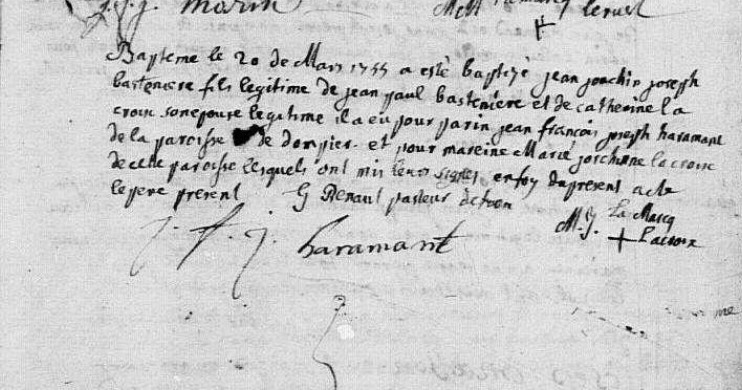 J. J. J. Marin
Bapteme le 20 de Mars 1755 a esté baptizé jean joachin joseph
basteniere fils legitime de jean paul basteniere et de catherine la
croix son epouse legitime il a eu pour parin jean françois joseph haramant
de la paroisse de dompier et pour mareine Marie joschinne lacroix
de cette paroisse lesquels ont mis leurs signes en foy du present acte
le pere present G Renaul pasteur de
La Marcq
M. J. + Lacroix
J. f. j. haramant